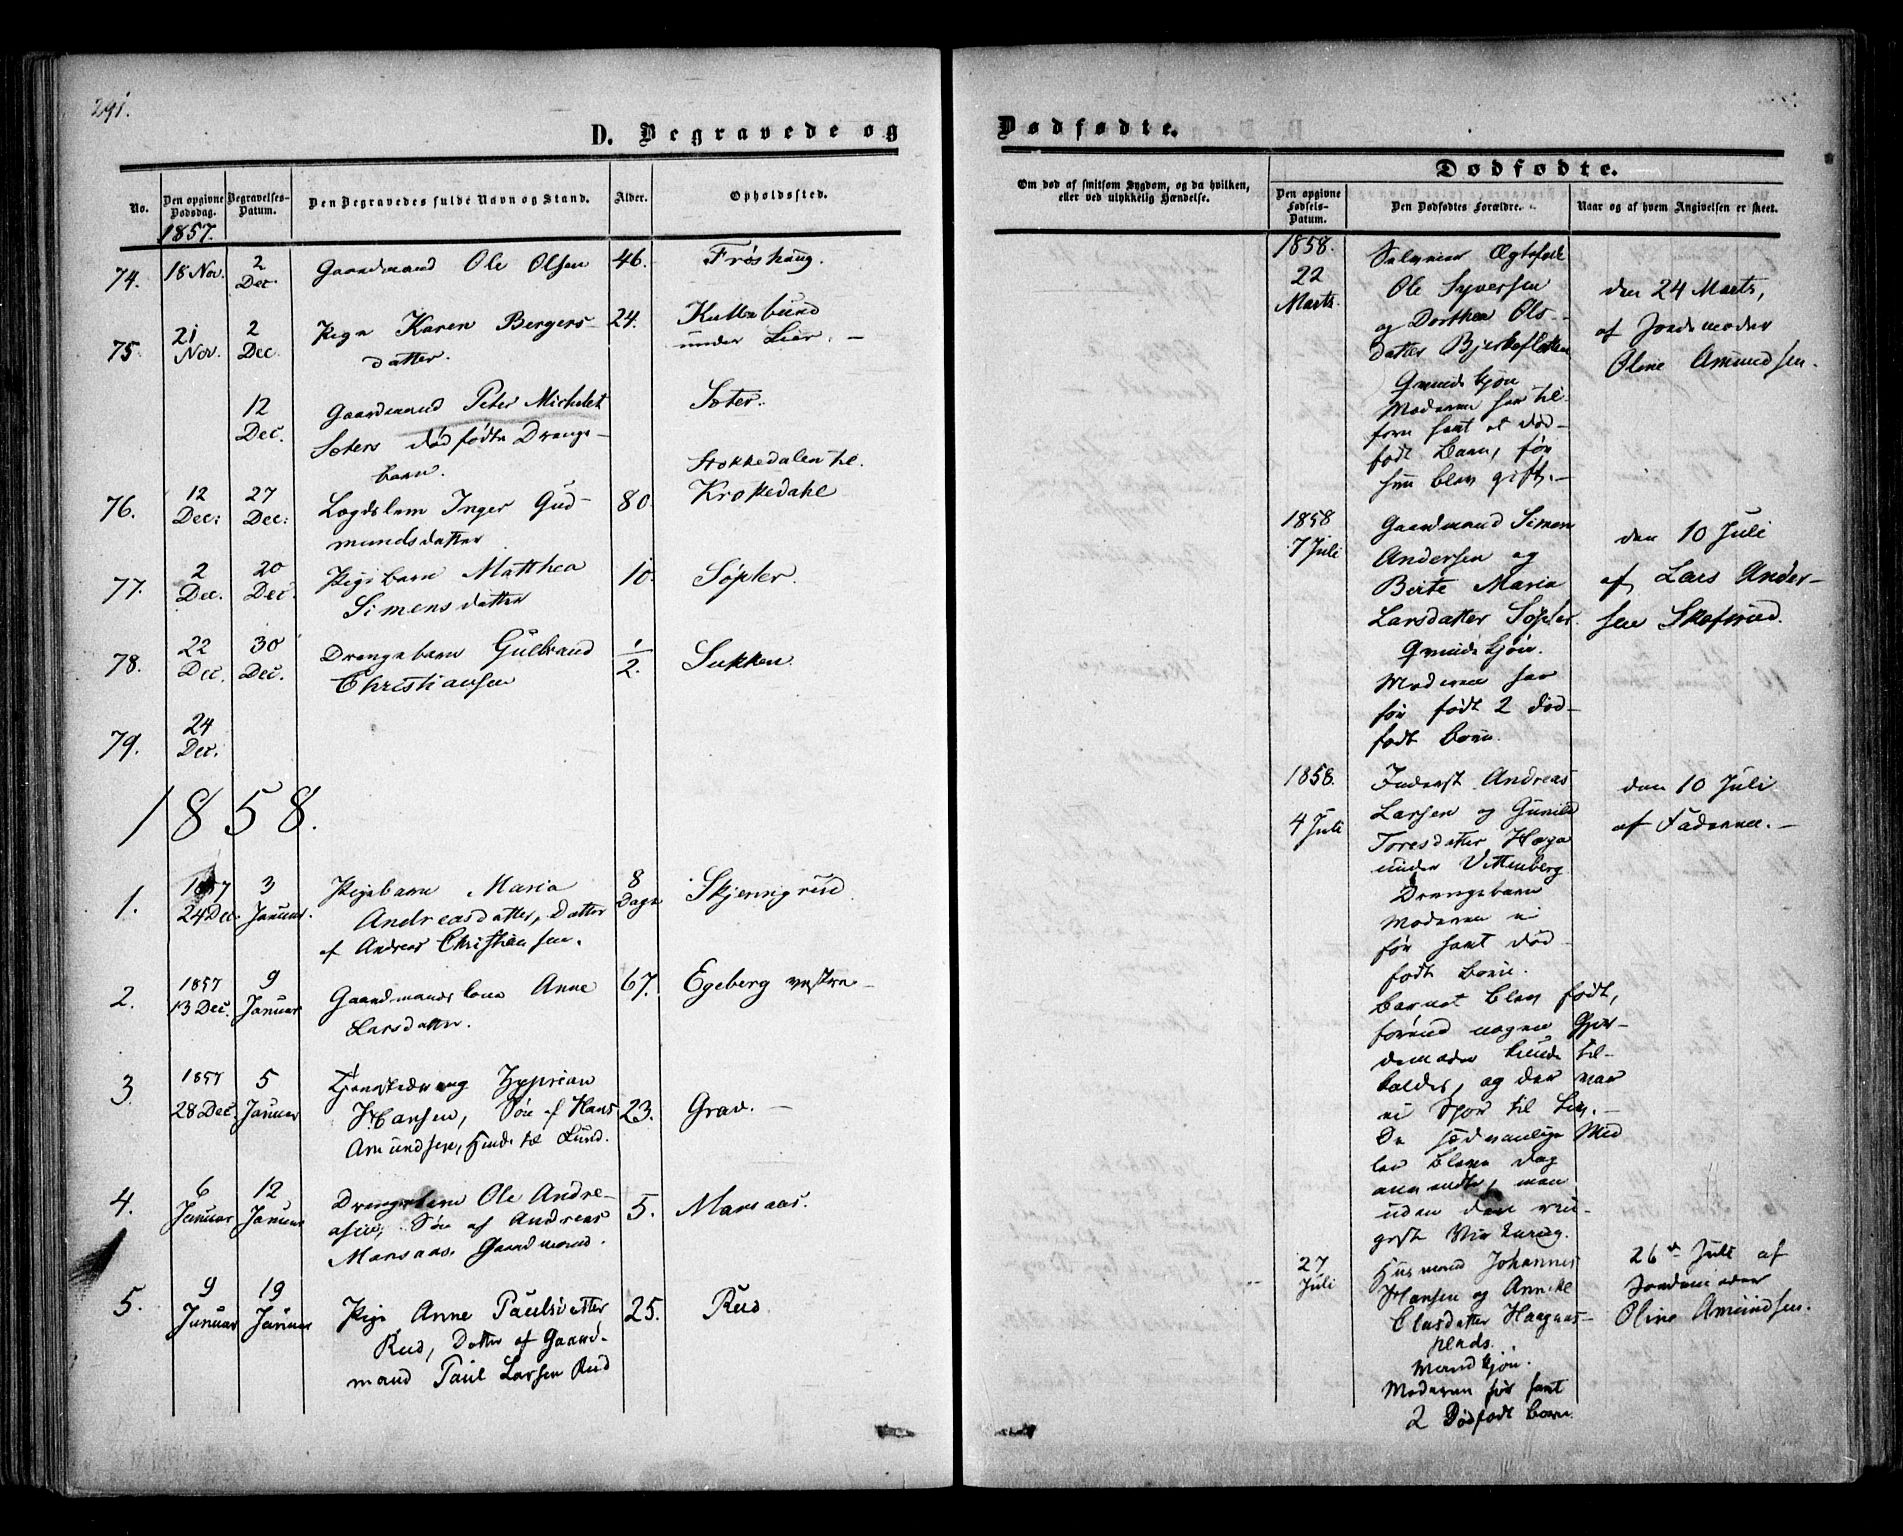 291.
D. Begravede og
No.
Den opgivne Dødsdag.
Begravelses-Datum.
Den Begravedes fulde Navn og Stand.
Alder.
Opholdssted.
1857.
74. 18 Nov. 2 Dec. Gaardmand Ole Olsen 46. Frøshaug.
75. 21 Nov. 2 Dec. Pige Karen Bergers- 24.
datter.
under Lier. –
12 Dec. Gaardmand Peter Michelet Sæter.
Sæters dødfødte Drenge-
barn.
Stokkedalen til
76. 12 Dec: 27 Dec: Lægdslem Inger Gud- 80. Krokedahl
mundsdatter
77. 2 Dec. 20 Dec. Pigebarn Matthea 10. Søpler.
Simensdatter
78. 22 Dec. 30 Dec. Drengebarn Gulbrand 1/2. Sukken.
Christiansen
79. 24 Dec.
1858.
1. 1857 24 Dec. 3 Januar. Pigebarn Maria 8 Dage Skjenngrud
Andreasdatter, Datter
af Andreas Christiansen.
2. 1857 13 Dec. 9 Januar Gaardmandskone Anne 67. Egeberg vestre –
Larsdatter.
3. 1857 28 Dec. 5 Januar Tjenestedreng Zyprian
Hansen, Søn af Hans 23. Grav. –
Amundsen, Lund.
4. 6 Januar 12 Januar Drengebarn Ole Andre- 5. Mansaas.
asen, Søn af Andreas
Mansaas Gaardmand.
5. 9 Januar 19 Januar Pige Anne Paulsdatter 25. Rud
Rud, Datter af Gaard-
mand Paul Larsen Rud
Dødfødte.
Om død af smitsom Sygdom, og da hvilken,
eller ved ulykkelig Hændelse.
Dødfødte.
Den opgivne Fødsels-Datum.
Den Dødfødtes Forældre.
Naar og af hvem Angivelsen er skeet.
1858. 22 Marts. Ægtefolk
Ole Syversen den 24 Marts,
og Dorthea Ols- af Jordemoder
datter Bjerkefletten Oline Amundsen.
Qvindekjøn
Moderen har til-
forn havt et død-
født Barn, før
hun blev gift. –
1858 7 Juli Gaardmand Simen den 10 Juli
Andersen og af Lars Ander-
Berte Maria sen Skofsrud.
Larsdatter Søpler.
Qvindekjøn.
Moderen har
før født 2 død-
født Børn.
1858. 4 Juli Inderst Andreas den 10 Juli
Larsen og Gunild af Faderen. –
Toresdatter Haga
under Vittenberg
Drengebarn
Moderen ei
før havt død-
født Børn.
Barnet blev født,
førend nogen Gjor-
demoder kunde til-
kaldes, og der var
ei Spor til Liv. –
De sædvanlige Mid
ler bleve dog
anvendte, men
uden den rin-
geste Virkning.
27 Juli Husmand Johannes 26de Juli af
Hansen og Anne Jordemoder
Olsdatter Haagaas- Oline Amundsen.
plads.
Mandkjøn.
Moderen før havt
2 Dødfødt Børn